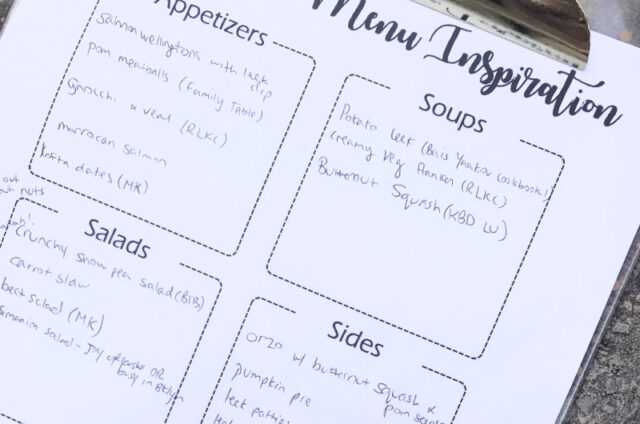 Menu Inspiration
Appetizers
Salmon wellingtons with leek
dip
pom meatballs (Family Table)
Gnocchi & veal (RLKC)
morrocan salmon
dates (MK)
out
out nuts
Soups
Potato leek (Bais Yaakov cookbook!)
creamy veg flanken (RLKC)
Butternut Squash (KBD LW)
Salads
crunchy snow pea salad (BTB)
carrot slaw
beet salad (MK)
Simanim salad - Joy of kosher OR
busy in Brklyn
Sides
orzo w/ butternut squash &
pom seeds
pumpkin pie
leek patties